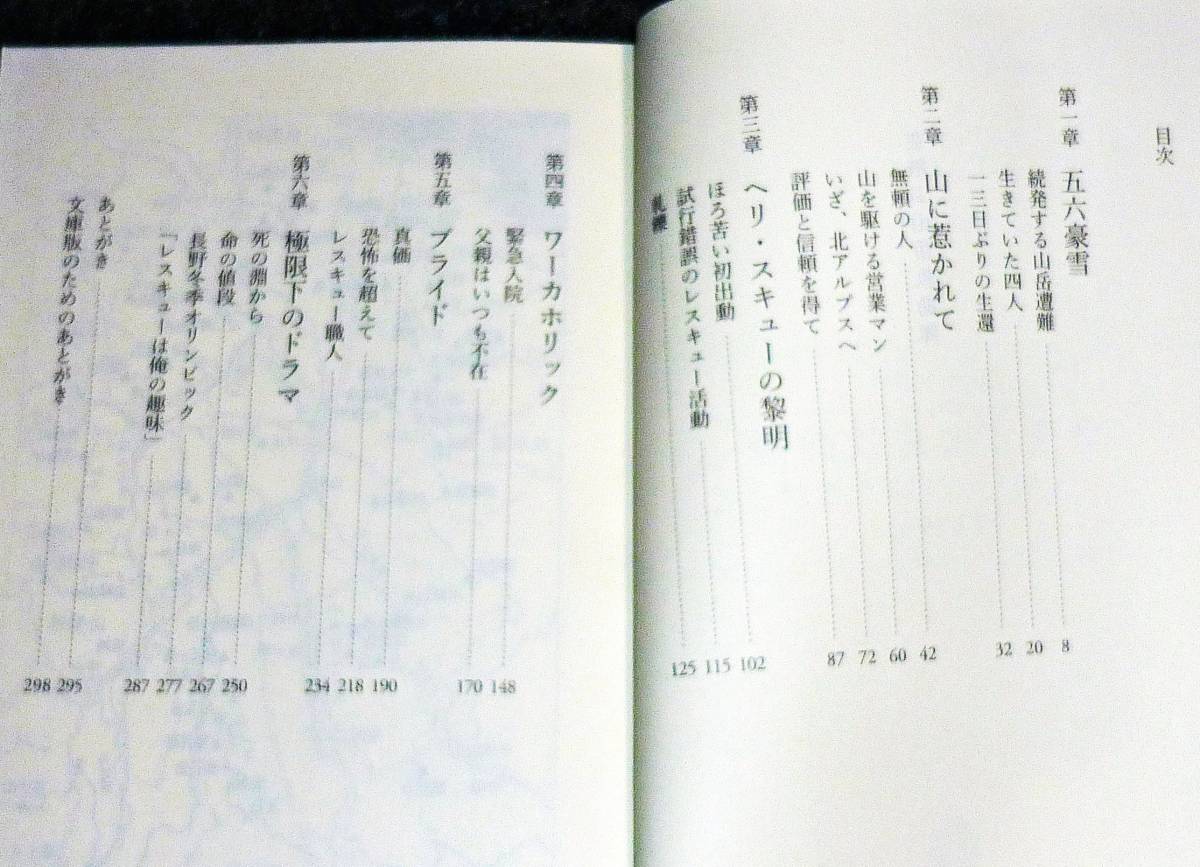 目次
第一章 五六豪雪
続発する山岳遭難 8
生きていた四人 20
一三日ぶりの生還 32
第二章 山に惹かれて
無頼の人 42
山を駆ける営業マン 60
いざ、北アルプスへ 72
評価と信頼を得て 87
第三章 ヘリ・スキューの黎明
ほろ苦い初出動 102
試行錯誤のレスキュー活動 115
軋轢 125
第四章 ワーカホリック
緊急入院 148
父親はいつも不在 170
第五章 プライド
真価 190
恐怖を超えて 218
レスキュー職人 234
第六章 極限下のドラマ
死の淵から 250
命の値段 267
長野冬季オリンピック 277
「レスキューは俺の趣味」 287
あとがき 295
文庫版のためのあとがき 298